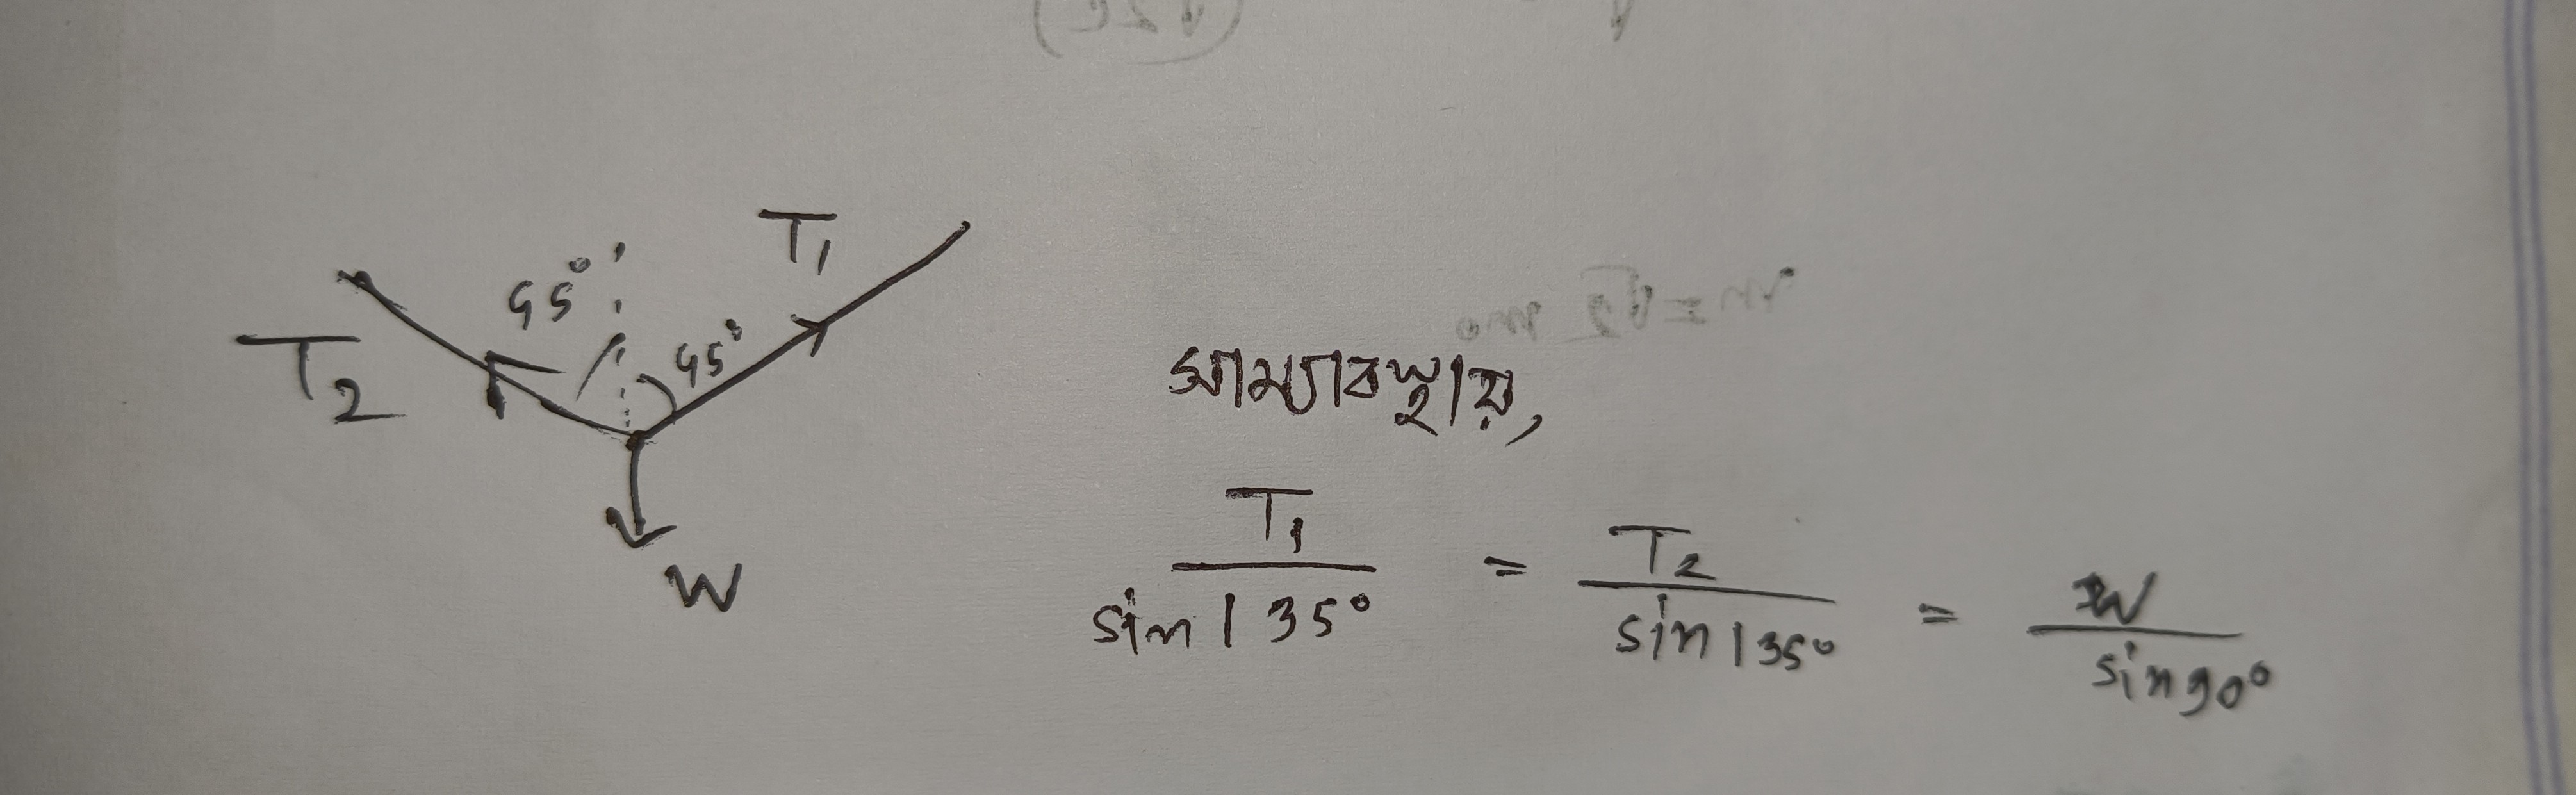 T₁
45°
T₂
45°
W
সাম্যাবস্থায়,
T₁/sin135° = T₂/sin135° = W/sin90°